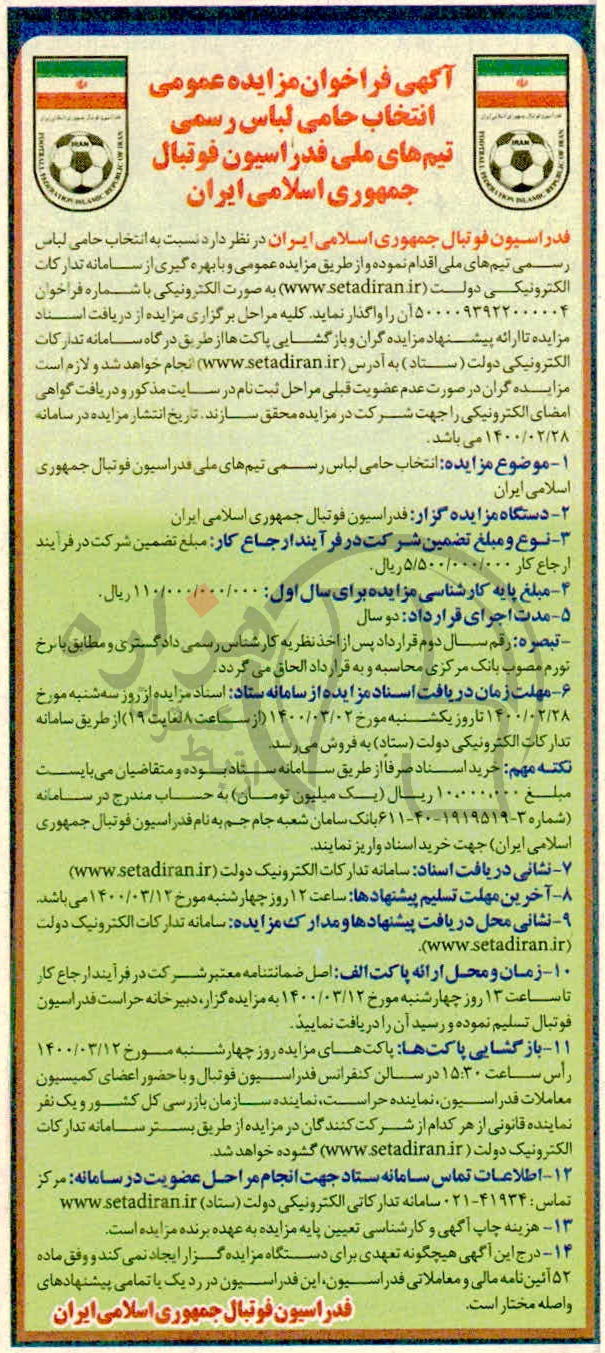 آگهی فراخوان مزایده عمومی
انتخاب حامی لباس رسمی
تیم‌های ملی فدراسیون فوتبال
جمهوری اسلامی ایران
IRAN
FOOTBALL FEDERATION ISLAMIC REPUBLIC OF IRAN
IRAN
FOOTBALL FEDERATION ISLAMIC REPUBLIC OF IRAN
فدراسیون فوتبال جمهوری اسلامی ایران در نظر دارد نسبت به انتخاب حامی لباس
رسمی تیم‌های ملی اقدام نموده و از طریق مزایده عمومی و با بهره گیری از سامانه تدارکات
الکترونیکی دولت (www.setadiran.ir) به صورت الکترونیکی با شماره فراخوان
۵۰۰۰۰۹۳۹۲۲۰۰۰۰۰۴ آن را واگذار نماید. کلیه مراحل برگزاری مزایده از دریافت اسناد
مزایده تا ارائه پیشنهاد مزایده گران و بازگشایی پاکت‌ها از طریق درگاه سامانه تدارکات
الکترونیکی دولت (ستاد) به آدرس (www.setadiran.ir) انجام خواهد شد و لازم است
مزایده گران در صورت عدم عضویت قبلی مراحل ثبت نام در سایت مذکور و دریافت گواهی
امضای الکترونیکی را جهت شرکت در مزایده محقق سازند. تاریخ انتشار مزایده در سامانه
۱۴۰۰/۰۲/۲۸ می باشد.
۱- موضوع مزایده: انتخاب حامی لباس رسمی تیم‌های ملی فدراسیون فوتبال جمهوری
اسلامی ایران
۲- دستگاه مزایده گزار: فدراسیون فوتبال جمهوری اسلامی ایران
۳- نوع و مبلغ تضمین شرکت در فرآیند ارجاع کار: مبلغ تضمین شرکت در فرآیند
ارجاع کار ۵/۵۰۰/۰۰۰/۰۰۰ ریال.
۴- مبلغ پایه کارشناسی مزایده برای سال اول: ۱۱۰/۰۰۰/۰۰۰/۰۰۰ ریال.
۵- مدت اجرای قرارداد: دو سال
- تبصره: رقم سال دوم قرارداد پس از اخذ نظریه کارشناس رسمی دادگستری و مطابق با نرخ
تورم مصوب بانک مرکزی محاسبه و به قرارداد الحاق می گردد.
۶- مهلت زمان دریافت اسناد مزایده از سامانه ستاد: اسناد مزایده از روز سه‌شنبه مورخ
۱۴۰۰/۰۲/۲۸ تا روز یکشنبه مورخ ۱۴۰۰/۰۳/۰۲ (از ساعت ۸ لغایت ۱۹) از طریق سامانه
تدارکات الکترونیکی دولت (ستاد) به فروش می‌رسد.
نکته مهم: خرید اسناد صرفاً از طریق سامانه ستاد بوده و متقاضیان می‌بایست
مبلغ ۱۰,۰۰۰,۰۰۰ ریال (یک میلیون تومان) به حساب مندرج در سامانه
(شماره ۳-۱۹۱۹۵۱۹-۴۰-۶۱۱ بانک سامان شعبه جام جم به نام فدراسیون فوتبال جمهوری
اسلامی ایران) جهت خرید اسناد واریز نمایند.
۷- نشانی دریافت اسناد: سامانه تدارکات الکترونیک دولت (www.setadiran.ir)
۸- آخرین مهلت تسلیم پیشنهادها: ساعت ۱۲ روز چهارشنبه مورخ ۱۴۰۰/۰۳/۱۲ می‌باشد.
۹- نشانی محل دریافت پیشنهادها و مدارک مزایده: سامانه تدارکات الکترونیک دولت
(www.setadiran.ir).
۱۰- زمان و محل ارائه پاکت الف: اصل ضمانتنامه معتبر شرکت در فرآیند ارجاع کار
تا ساعت ۱۳ روز چهارشنبه مورخ ۱۴۰۰/۰۳/۱۲ به مزایده گزار، دبیرخانه حراست فدراسیون
فوتبال تسلیم نموده و رسید آن را دریافت نمایید.
۱۱- بازگشایی پاکت‌ها: پاکت‌های مزایده روز چهارشنبه مورخ ۱۴۰۰/۰۳/۱۲
رأس ساعت ۱۵:۳۰ در سالن کنفرانس فدراسیون فوتبال و با حضور اعضای کمیسیون
معاملات فدراسیون، نماینده حراست، نماینده سازمان بازرسی کل کشور و یک نفر
نماینده قانونی از هر کدام از شرکت کنندگان در مزایده از طریق بستر سامانه تدارکات
الکترونیک دولت (www.setadiran.ir) گشوده خواهد شد.
۱۲- اطلاعات تماس سامانه ستاد جهت انجام مراحل عضویت در سامانه: مرکز
تماس: ۴۱۹۳۴-۰۲۱ سامانه تدارکاتی الکترونیکی دولت (ستاد) www.setadiran.ir
۱۳- هزینه چاپ آگهی و کارشناسی تعیین پایه مزایده به عهده برنده مزایده است.
۱۴- درج این آگهی هیچگونه تعهدی برای دستگاه مزایده گزار ایجاد نمی کند و وفق ماده
۵۲ آئین نامه مالی و معاملاتی فدراسیون، این فدراسیون در رد یک یا تمامی پیشنهادهای
واصله مختار است.
فدراسیون فوتبال جمهوری اسلامی ایران